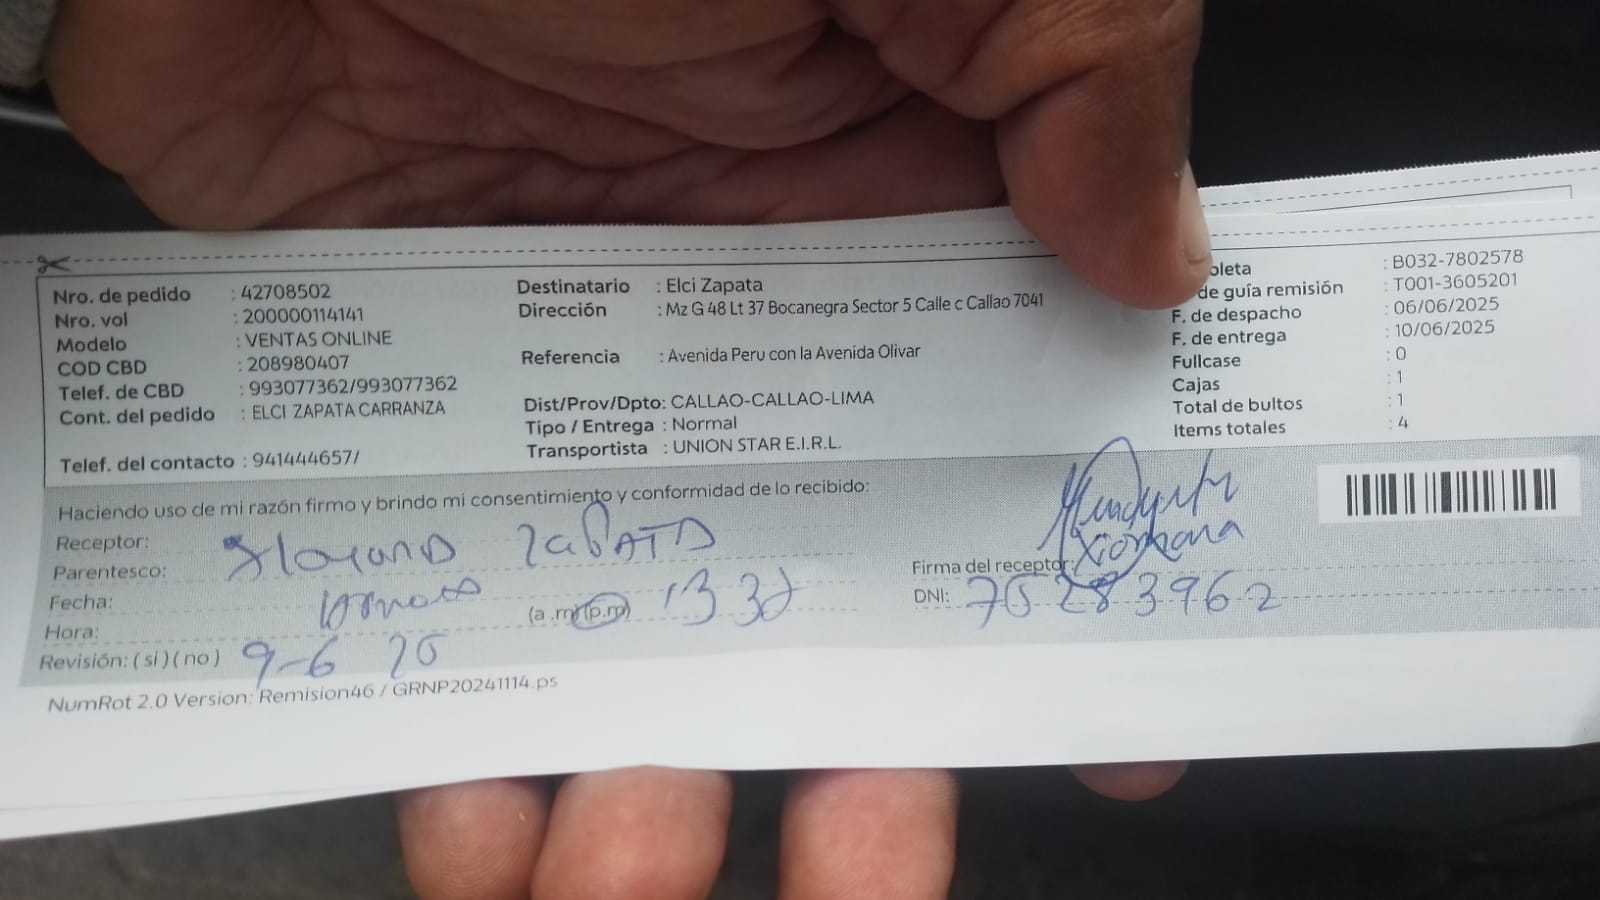 Nro. de pedido : 42708502
Nro. vol : 200000114141
Modelo : VENTAS ONLINE
COD CBD : 208980407
Telef. de CBD : 993077362/993077362
Cont. del pedido : ELCI ZAPATA CARRANZA
Telef. del contacto : 941444657/
Destinatario : Elci Zapata
Dirección : Mz G 48 Lt 37 Bocanegra Sector 5 Calle c Callao 7041
Referencia : Avenida Peru con la Avenida Olivar
Dist/Prov/Dpto: CALLAO-CALLAO-LIMA
Tipo / Entrega : Normal
Transportista : UNION STAR E.I.R.L.
: B032-7802578
de guía remisión : T001-3605201
F. de despacho : 06/06/2025
F. de entrega : 10/06/2025
Fullcase : 0
Cajas : 1
Total de bultos : 1
Items totales : 4
Haciendo uso de mi razón firmo y brindo mi consentimiento y conformidad de lo recibido:
Receptor:
Zapata
Parentesco:
Fecha:
Hora: (a .m) (p.m)
Revisión: ( si ) ( no ) 9-6
Firma del receptor: Xiomara
DNI: 75283962
NumRot 2.0 Version: Remision46 / GRNP20241114.ps